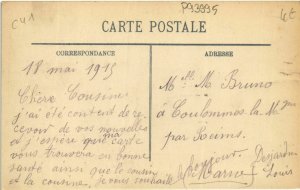 C41
P93995
4€
CARTE POSTALE
CORRESPONDANCE
ADRESSE
18 mai 1915
Chère Cousine
j'ai été content de re-
cevoir de vos nouvelles
et j'espère que ma carte
vous trouvera en bonne
santé ainsi que le cousin
et la cousine, je vous souhaite
le bonjour
M M Bruno
à Coulommes la
par Reims.
Marne
Desjardin
Louis